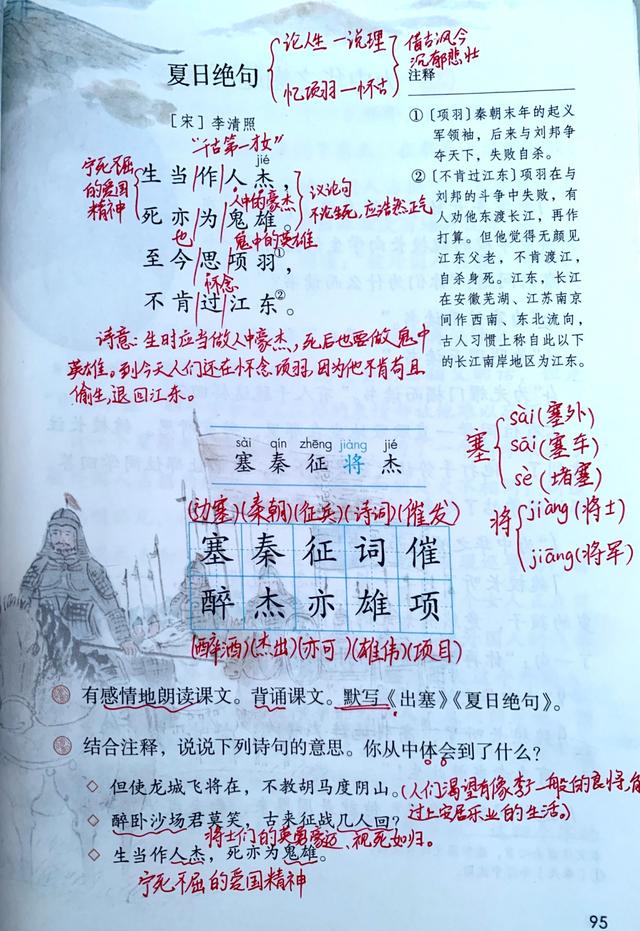 夏日绝句
论人生—说理
忆项羽—怀古
借古讽今
沉郁悲壮
[宋]李清照
"千古第一才女"
宁死不屈
的爱国
精神
jié
生当作人杰，
人中的豪杰
死亦为鬼雄。
也
鬼中的英雄
议论句
不论生死，应浩然正气
至今思项羽①，
怀念
不肯过江东②。
诗意：生时应当做人中豪杰，死后也要做鬼中
英雄。到今天人们还在怀念项羽，因为他不肯苟且
偷生，退回江东。
注释
①〔项羽〕秦朝末年的起义
军领袖，后来与刘邦争
夺天下，失败自杀。
②〔不肯过江东〕项羽在与
刘邦的斗争中失败，有
人劝他东渡长江，再作
打算。但他觉得无颜见
江东父老，不肯渡江，
自杀身死。江东，长江
在安徽芜湖、江苏南京
间作西南、东北流向，
古人习惯上称自此以下
的长江南岸地区为江东。
sài qín zhēng jiàng jié
塞 秦 征 将 杰
塞
sài（塞外）
sāi（塞车）
sè（堵塞）
将
jiàng（将士）
jiāng（将军）
（边塞）（秦朝）（征兵）（诗词）（催发）
塞 秦 征 词 催
醉 杰 亦 雄 项
（醉酒）（杰出）（亦可）（雄伟）（项目）
有感情地朗读课文。背诵课文。默写《出塞》《夏日绝句》。
结合注释，说说下列诗句的意思。你从中体会到了什么？
◇ 但使龙城飞将在，不教胡马度阴山。（人们渴望有像李广一般的良将，能
过上安居乐业的生活。）
◇ 醉卧沙场君莫笑，古来征战几人回？
将士们的英勇豪迈、视死如归。
◇ 生当作人杰，死亦为鬼雄。
宁死不屈的爱国精神
95